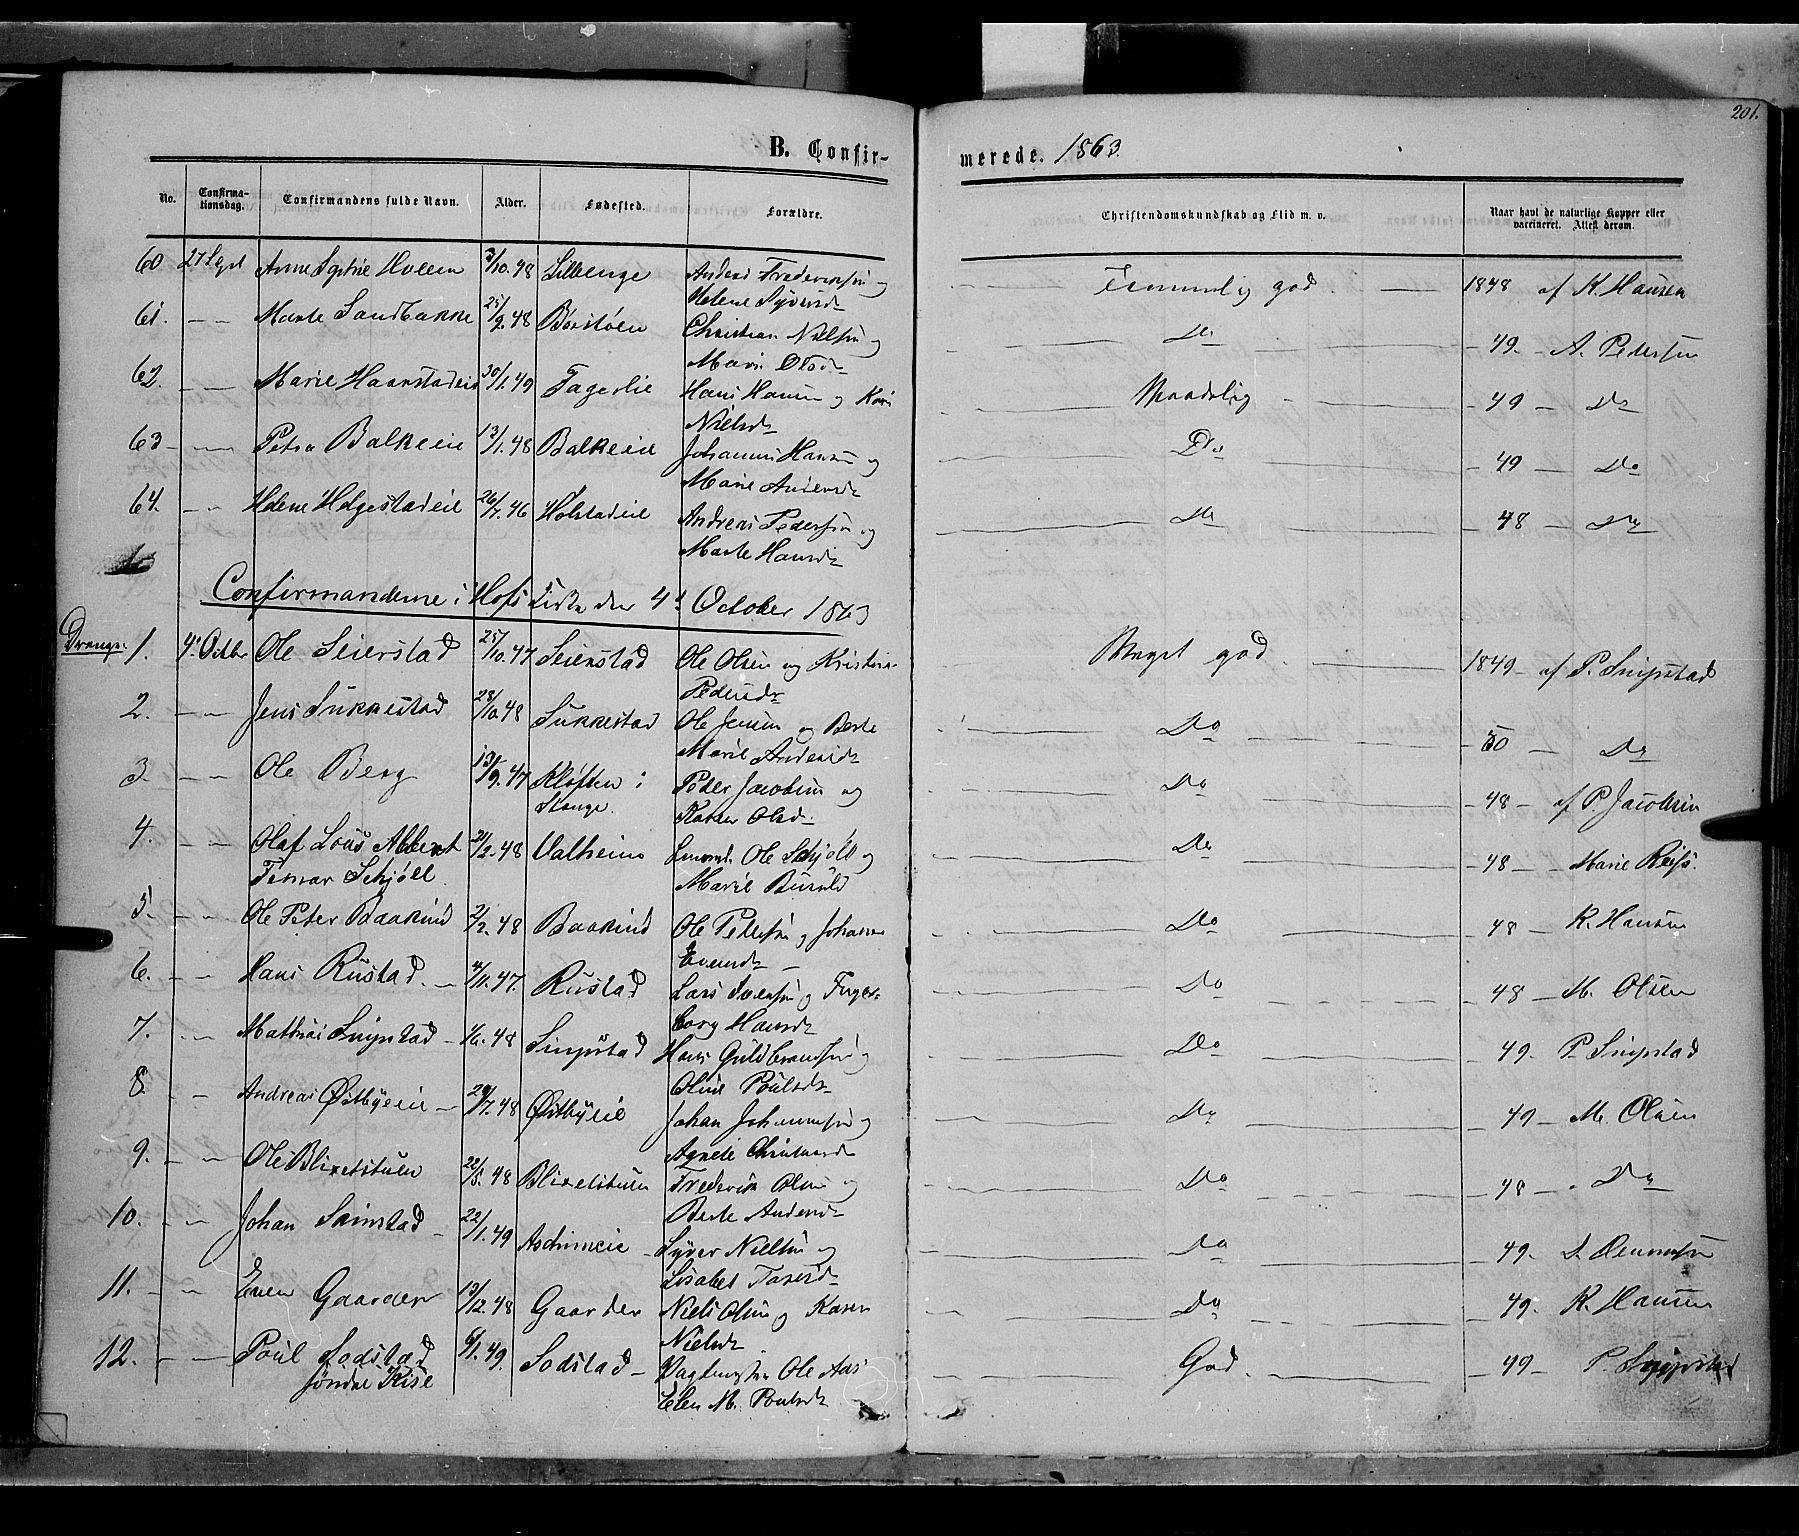 201.
B. Confir-
merede. 1863.
No.
Confirma-
tionsdag.
Confirmandens fulde Navn.
Alder.
Fødested.
Forældre.
Christendomskundskab og Flid m. v.
Naar havt de naturlige Kopper eller
vaccineret. Attest derom.
60 27 Sept Anne Sophie 3/10.48 Lillenge Anders
Helene Syversd
Temmelig god. 1848 af K. Hansen
61. Marte Sandbakke 25/9.48 Børstøen Christian Nielsen og
Marie Olsd
Do 49. A. Pedersen
62. Marie Haarstadeie 30/1.49 Fagerlie Hans Hansen og Kari
Nielsd
Maadelig 49 Do
63 Petra Balkeeie 13/1.48 Balkeeie Johannes Hansen og
Marie Andersd
Do 49 Do
64. Helene Helgestadeie 26/7.46 Holstadeie Andreas Pedersen og
Marte Hansd
Do 48 Do
Confirmanderne i Hofs Kirke den 4d October 1863
Drenge:
1. 4. Octbr Ole Seierstad 25/10.47 Seierstad Ole Olsen og Kristine
Pedersd
Meget god. 1849 af P. Snipstad
2. Jens Sukkestad 28/10.48 Sukkestad Ole Jensen og Berte
Marie Andersd
Do 50 Do
3. Ole Berg 13/9.47 Kløften i
Stange.
Peder Jacobsen og
Karen Olsd.
Do 48 af P. Jacobsen
4. Olaf Louis Albert
Schjøll
21/2.48 Valheim Ole Schjøll og
Marie
Do 48 Marie Reis.
5. Ole Peter Baakind 2/2.48 Baakind Ole Pedersen og Johanne
Evensd
Do 48 K. Hansen
6. Hans Rustad. 4/11.47. Rustad Lars Svensen og Inger-
borg Hansd
Do 48 M. Olsen
7. Mathias Snipstad 1/6.48 Snipstad Hans Guldbrandsen og
Oline Poulsd
Do 49. P. Snipstad
8. Andreas Østbyeie 29/7.48 Østbyeie Johan Johannesen og
Agnete Christiansd
Do 49 M. Olsen
9. Ole Blixetstuen 22/5.48 Blixetstuen Frederik Olsen og
Berte Andersd
Do 48 Do
10. Johan Sæmstad 22/1.49 Syver Nielsen og
Lisabet
Do 49.
11. Even Gaarder 13/12.48 Gaarder Niels Olsen og Karen
Nielsd
Do 49. K. Hansen
12. Poul Sodstad
Søndre Kise
6/1.49. Sodstad Vagtmester Ole Aas
Elen M. Poulsd
God. 49 P. Snipstad